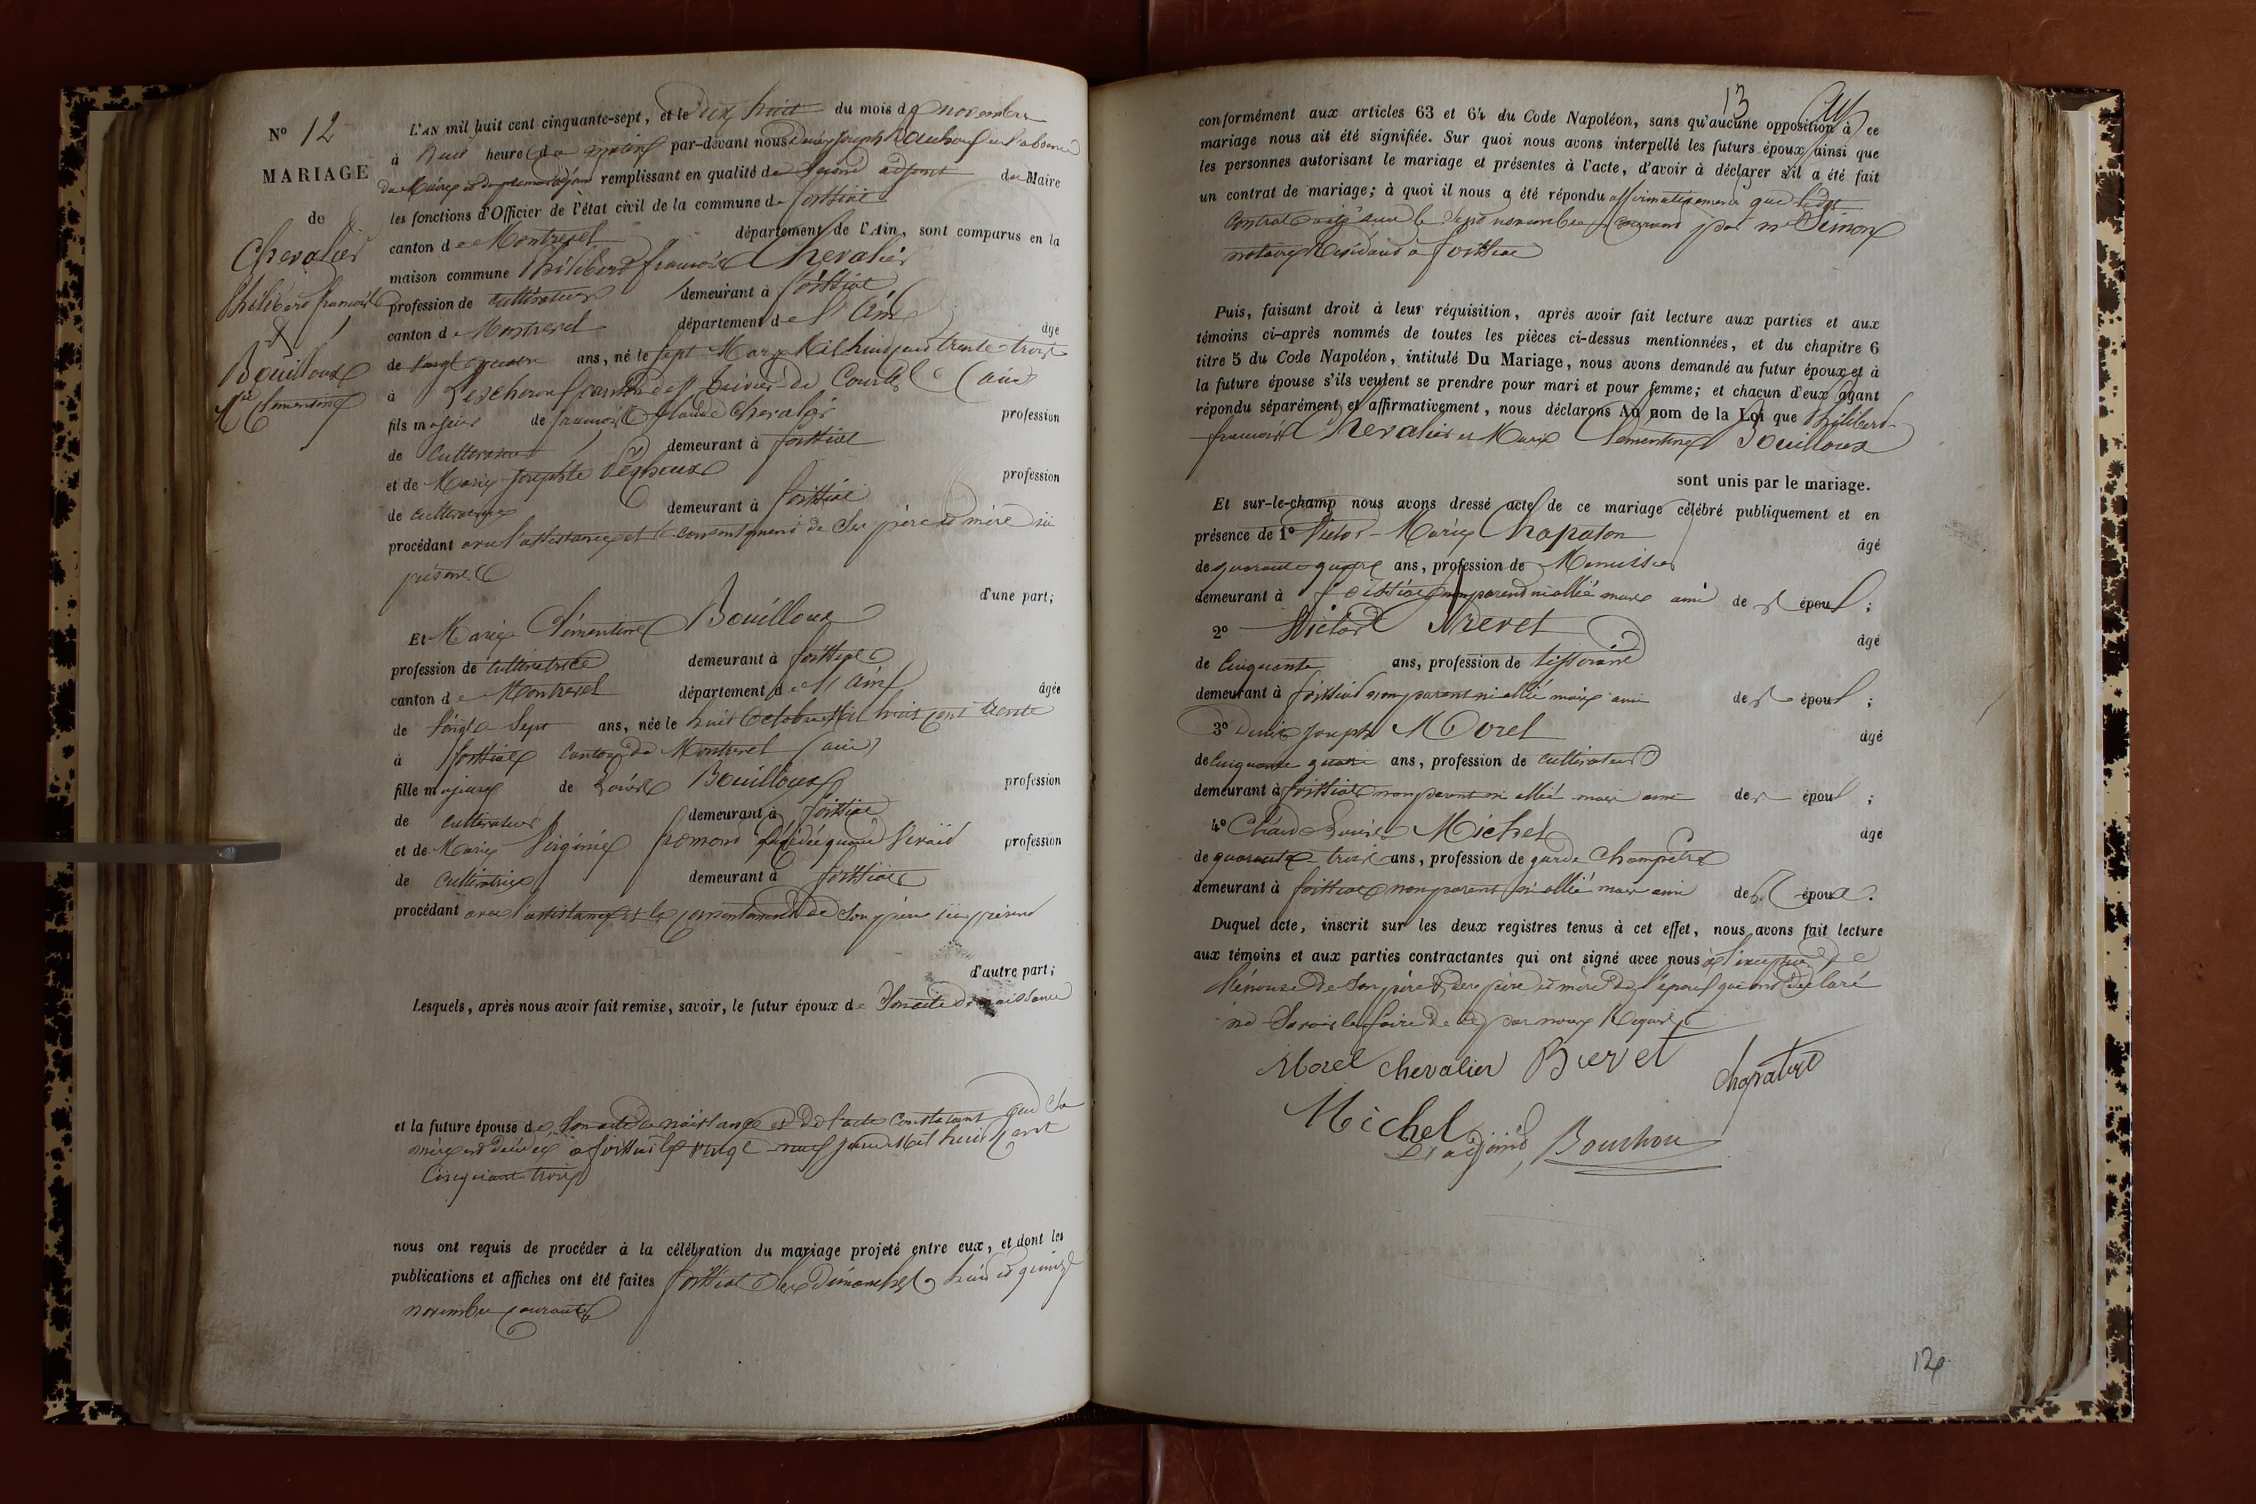 N° 12
MARIAGE
de
Chevalier
Philibert françois
&
Bouilloux
Mie Clementine
L'AN mil huit cent cinquante-sept, et le dix huit du mois de novembre
à huit heure du matin par-devant nous Denis Joseph Bouchoux en l'absence
du Maire et du premier adjoint remplissant en qualité de second adjoint du Maire
les fonctions d'Officier de l'état civil de la commune de foissiat
canton de Montrevel département de l'Ain, sont comparus en la
maison commune Philibert françois Chevalier
profession de cultivateur demeurant à foissiat
canton de Montrevel département de l'Ain âgé
de vingt quatre ans, né le sept Mars Mil huit cent trente trois
à Lescheroux canton de St trivier de Courtes (ain)
fils majeur de françois Claude Chevalier profession
de cultivateur demeurant à foissiat
et de Marie Josephte profession
de cultivatrice demeurant à foissiat
procédant avec l'assistance et le consentement de ses père et mère ici
présents
d'une part;
Et Marie Clémentine Bouilloux
profession de cultivatrice demeurant à foissiat
canton de Montrevel département de l'Ain âgée
de vingt sept ans, née le huit Octobre Mil huit cent trente
à foissiat canton de Montrevel (ain)
fille majeure de Louis Bouilloux profession
de cultivateur demeurant à foissiat
et de Marie Virginie fromont décédée quand vivait profession
de cultivatrice demeurant à foissiat
procédant avec l'assistance et le consentement de son père ici présent
d'autre part;
Lesquels, après nous avoir fait remise, savoir, le futur époux de son acte de naissance
et la future épouse de son acte de naissance et de l'acte constatant que sa
mère est décédée à foissiat le vingt neuf Mil huit cent
cinquante trois
nous ont requis de procéder à la célébration du mariage projeté entre eux, et dont les
publications et affiches ont été faites foissiat les dimanches huit et quinze
novembre courant
13
conformément aux articles 63 et 64 du Code Napoléon, sans qu'aucune opposition à ce
mariage nous ait été signifiée. Sur quoi nous avons interpellé les futurs époux ainsi que
les personnes autorisant le mariage et présentes à l'acte, d'avoir à déclarer s'il a été fait
un contrat de mariage; à quoi il nous a été répondu affirmativement que ledit
contrat reçu le sept novembre courant par me Simon
notaire Résidant à foissiat
Puis, faisant droit à leur réquisition, après avoir fait lecture aux parties et aux
témoins ci-après nommés de toutes les pièces ci-dessus mentionnées, et du chapitre 6
titre 5 du Code Napoléon, intitulé Du Mariage, nous avons demandé au futur époux et à
la future épouse s'ils veulent se prendre pour mari et pour femme; et chacun d'eux ayant
répondu séparément et affirmativement, nous déclarons Au nom de la Loi que Philibert
françois Chevalier et Marie Clémentine Bouilloux
sont unis par le mariage.
Et sur-le-champ nous avons dressé acte de ce mariage célébré publiquement et en
présence de 1° Victor Marie Chapaton âgé
de quarante quatre ans, profession de Menuisier
demeurant à foissiat non parent ni allié mais ami des époux;
2° Victor Brevet âgé
de cinquante ans, profession de tisserand
demeurant à foissiat non parent ni allié mais ami des époux;
3° Denis Joseph Morel âgé
de cinquante quatre ans, profession de cultivateur
demeurant à foissiat non parent ni allié mais ami des époux;
4° Claude Louis Michel âgé
de quarante trois ans, profession de garde Champêtre
demeurant à foissiat non parent ni allié mais ami des époux.
Duquel acte, inscrit sur les deux registres tenus à cet effet, nous avons fait lecture
aux témoins et aux parties contractantes qui ont signé avec nous à l'exception de
l'épouse de son père & des père et mère de l'époux qui ont déclaré
ne savoir le faire de ce par nous Requis
Morel Chevalier Brevet
Chapaton
Michel
L'adjoint, Bouchoux
12